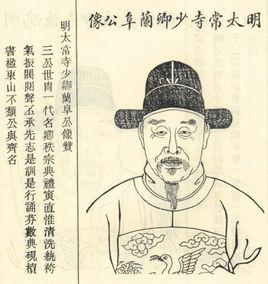 明太常寺少卿蘭阜公像
明太常寺少卿蘭阜公像贊
三公世胄一代名卿秩宗典禮寅直惟清洗紈袴
氣振閥閱聲丕承先志是訓是行誦芬數典硯楨
書楹東山不頹公與齊名